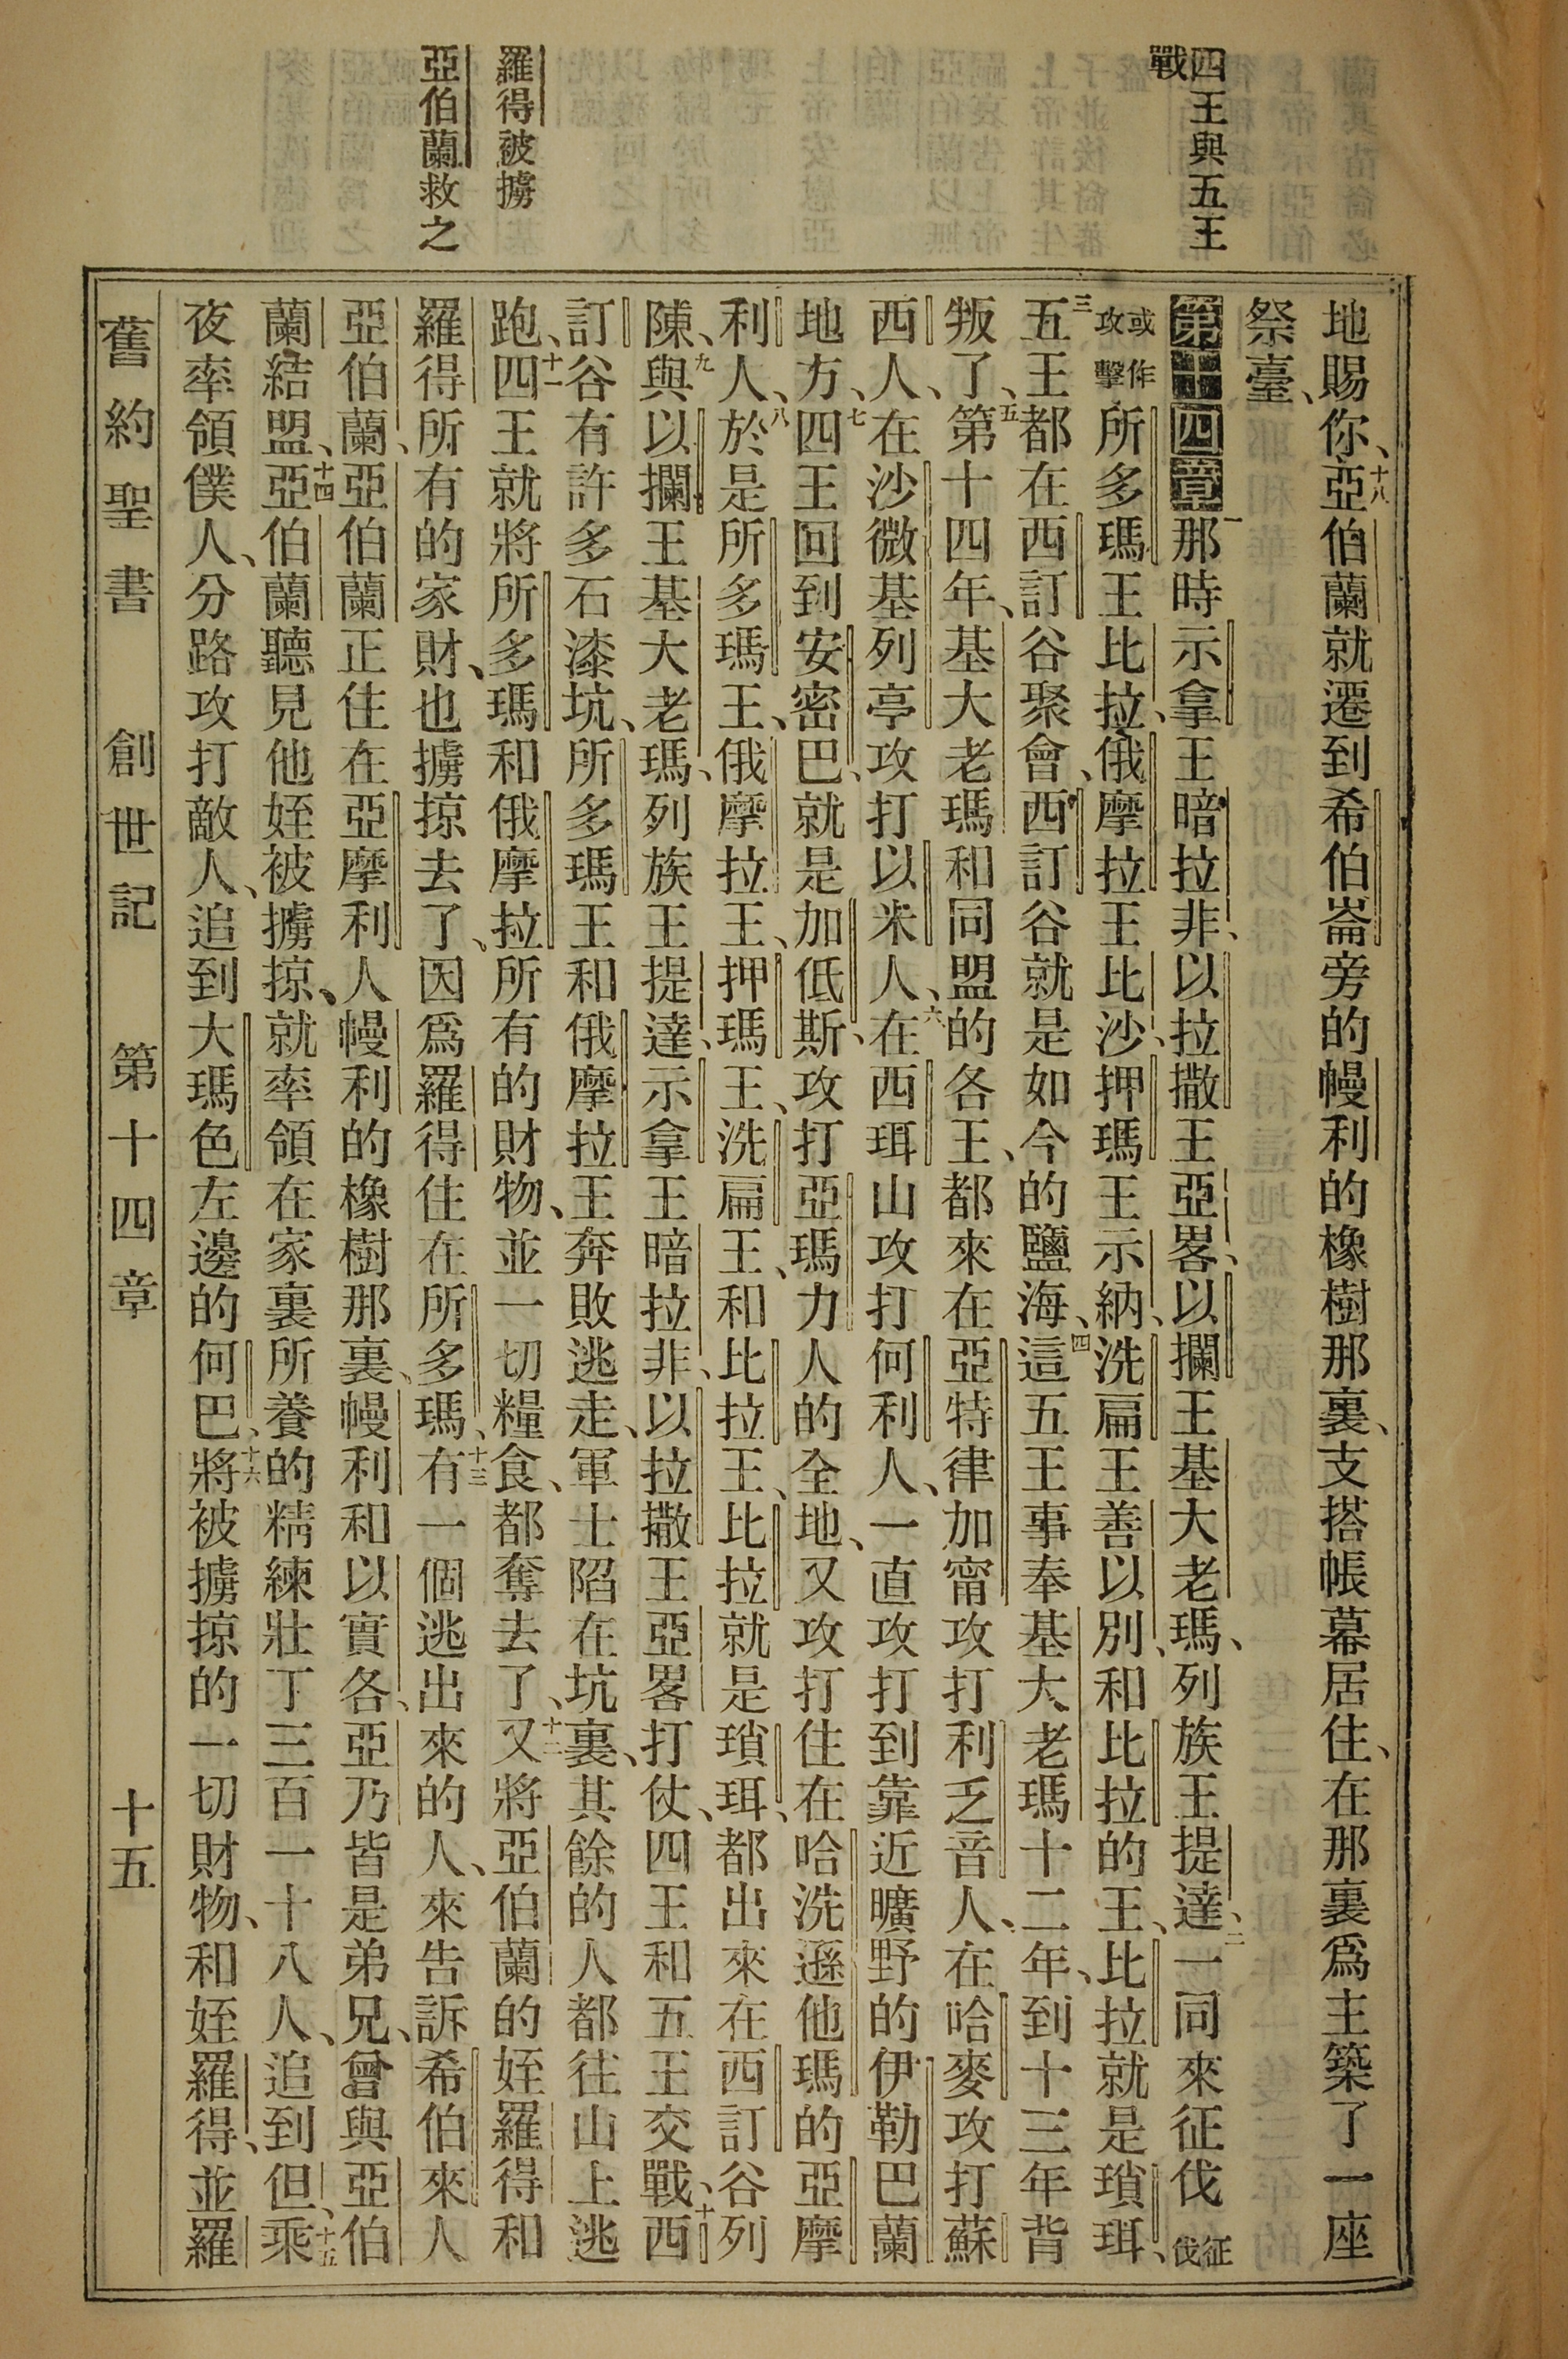 四王與五王
戰
羅得被擄
亞伯蘭救之
地賜你、十八亞伯蘭就遷到希伯崙旁的幔利的橡樹那裏、支搭帳幕居住、在那裏爲主築了一座
祭臺、
第十四章 一那時示拿王暗拉非、以拉撒王亞畧、以攔王基大老瑪、列族王提達、二一同來征伐征伐
或作攻擊所多瑪王比拉、俄摩拉王比沙、押瑪王示納、洗扁王善以別、和比拉的王、比拉就是瑣珥、
三五王都在西訂谷聚會、西訂谷就是如今的鹽海、四這五王事奉基大老瑪十二年、到十三年背
叛了、五第十四年、基大老瑪和同盟的各王、都來在亞特律加甯攻打利乏音人、在哈麥攻打蘇
西人、在沙微基列亭攻打以米人、六在西珥山攻打何利人、一直攻打到靠近曠野的伊勒巴蘭
地方、七四王回到安密巴、就是加低斯、攻打亞瑪力人的全地、又攻打住在哈洗遜他瑪的亞摩
利人、八於是所多瑪王、俄摩拉王、押瑪王、洗扁王、和比拉王、比拉就是瑣珥、都出來在西訂谷列
陳、九與以攔王基大老瑪、列族王提達、示拿王暗拉非、以拉撒王亞畧打仗、四王和五王交戰、十西
訂谷有許多石漆坑、所多瑪王和俄摩拉王奔敗逃走、軍士陷在坑裏、其餘的人都往山上逃
跑、十一四王就將所多瑪和俄摩拉所有的財物、並一切糧食、都奪去了、十二又將亞伯蘭的姪羅得和
羅得所有的家財、也擄掠去了、因爲羅得住在所多瑪、十三有一個逃出來的人、來告訴希伯來人
亞伯蘭、亞伯蘭正住在亞摩利人幔利的橡樹那裏、幔利和以實各、亞乃皆是弟兄、曾與亞伯
蘭結盟、十四亞伯蘭聽見他姪被擄掠、就率領在家裏所養的精練壯丁三百一十八人、追到但、十五乘
夜率領僕人、分路攻打敵人、追到大瑪色左邊的何巴、十六將被擄掠的一切財物、和姪羅得、並羅
舊約聖書 創世記 第十四章 十五